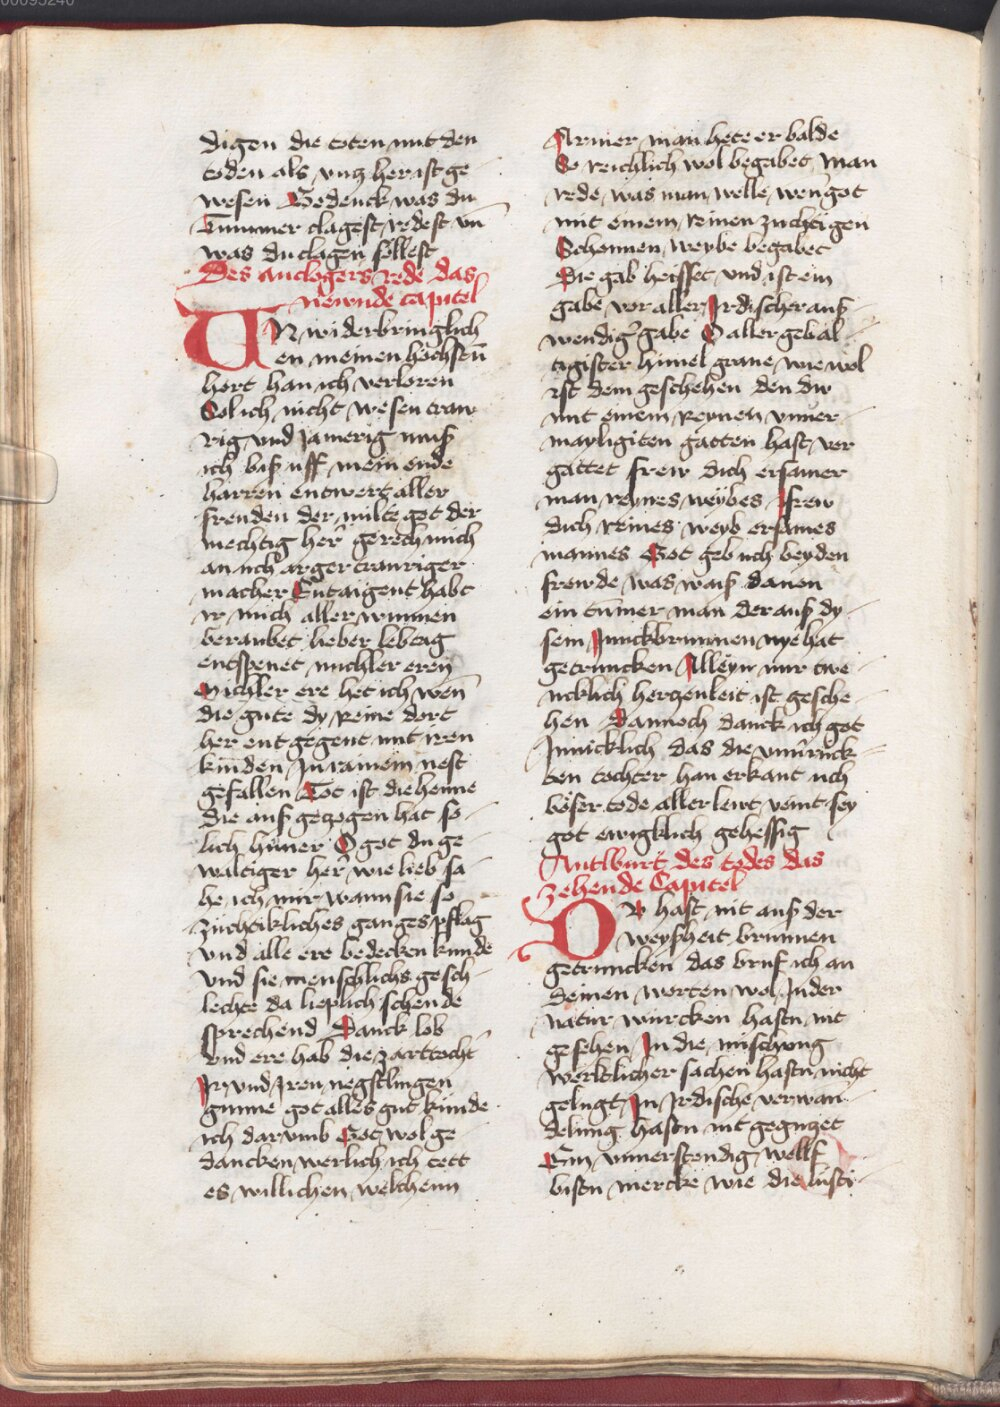 00095240
digen die toten mit den
toden als vntz her ist ge
wesen Gedenck was du
Tummer clagest redest vn̄
was du clagen sȯllest
Des anclogers rede das
newnde capitel
VN widerbringlich
en meinen hȯchsten̄
hort han ich verloren
Sol ich nicht wesen traw
rig vnd Jamerig muß
ich biß uff mein ende
harren entwert aller
freuden der milte got der
mechtig her gerech mich
an uch arger trauriger
macher Entaigent habt
ir mich aller wunnen
beraubet lieber lebtag
entspenet michler eren
Michler ere het ich wen̄
die gute dy reine dort
her ent gegent mit iren
kinden Jn rainem nest
gefallen Tot ist die henne
die auß gezogen hat so
lich hůner O got du ge
waltiger her wie lieb sa
he ich mir wann sie so
zůchtikliches ganges pflag
vnd alle ere bedecken kunde
vnd sie menschlichs gesch
lechte da lieplich sehen de
sprechend Danck lob
vnd ere hab die zart tocht
Jr vnd Jren negstlingen
gunne got alles gut kunde
ich dar vmb Got wol ge
dancken werlich ich tett
es willichen welchenn
Armer man hete er balde
So reichlich wol begabet man
rede was man welle wen got
mit einem reinen zuchtigen
Schonnen weybe begabet
Die gab heisset vnd ist ein
gabe vor aller Jrdischer auß
wendig gabe O aller gewal
tigister himel graue wie wol
ist dem geschehen den du
mit einem Reynen vnuer
mayligiten gatten hast ver
gattet frew dich ersamer
man reynes weybes frew
dich reines weyb ersames
mannes Got geb uch beyden
frewde was waiß dauon
ein tum̄er man der auß dy
sem Junckbrunnen nye hat
getruncken Alleyn mir twe
ncklich hertzenleit ist gesche
hen Dannoch danck ich got
Jnnicklich das die vnuerruck
ten tochter han erkant uch
bȯser tode aller lewt veint sey
got ewigklich gehessig
Antlwurt des todes das
zehende Capitel
DV hast nit auß der
weyßheit brunnen
getruncken das bruf ich an
deinen worten wol Jn der
natur wurcken hastu nit
gesehen Jn die mischung
werktlicher sachen hastu nicht
gelugt Jn Jrdische verwan
delung hastu nit gegutzet
Ein vnuerstendig welff
bistu mercke wie die lusti